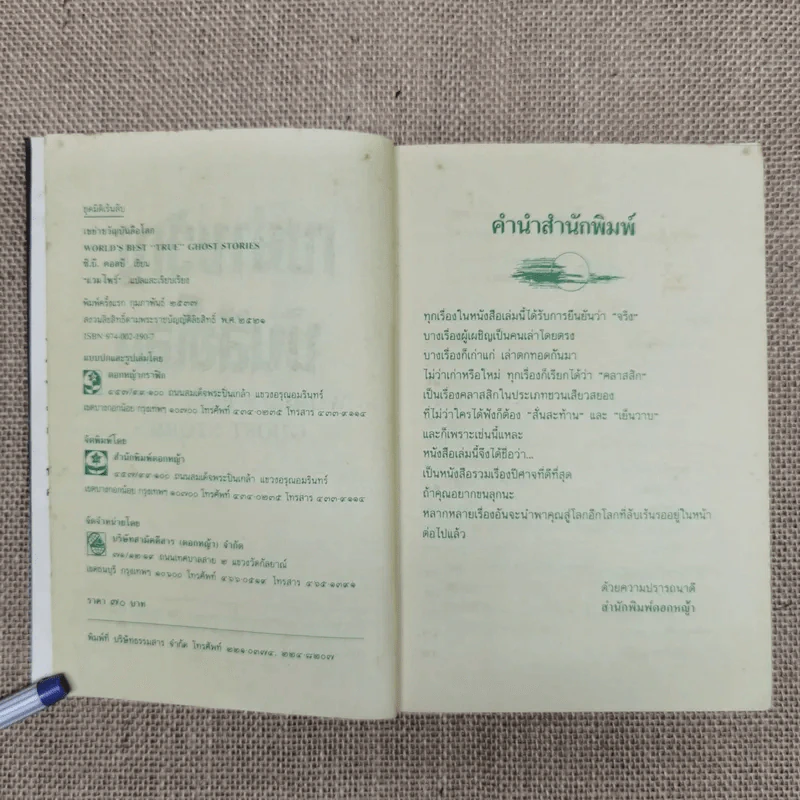 ชุดมิติเร้นลับ
เขย่าขวัญบันลือโลก
WORLD'S BEST "TRUE" GHOST STORIES
ซี.บี. คอลบี เขียน
"แวมไพร์" แปลและเรียบเรียง
พิมพ์ครั้งแรก กุมภาพันธ์ ๒๕๓๗
สงวนลิขสิทธิ์ตามพระราชบัญญัติลิขสิทธิ์ พ.ศ. ๒๕๒๑
ISBN 974-602-090-7
แบบปกและรูปเล่มโดย
ดอกหญ้ากราฟิค
๔๕๗/๙๙-๑๐๐ ถนนสมเด็จพระปิ่นเกล้า แขวงอรุณอมรินทร์
เขตบางกอกน้อย กรุงเทพฯ ๑๐๗๐๐ โทรศัพท์ ๔๓๔-๐๒๓๕ โทรสาร ๔๓๓-๙๑๑๔
จัดพิมพ์โดย
สำนักพิมพ์ดอกหญ้า
๔๕๗/๙๙-๑๐๐ ถนนสมเด็จพระปิ่นเกล้า แขวงอรุณอมรินทร์
เขตบางกอกน้อย กรุงเทพฯ ๑๐๗๐๐ โทรศัพท์ ๔๓๔-๐๒๓๕ โทรสาร ๔๓๓-๙๑๑๔
จัดจำหน่ายโดย
บริษัทสามัคคีสาร (ดอกหญ้า) จำกัด
๗๑/๑๒-๑๙ ถนนเทศบาลสาย ๒ แขวงวัดกัลยาณ์
เขตธนบุรี กรุงเทพฯ ๑๐๖๐๐ โทรศัพท์ ๔๖๖-๐๕๑๙ โทรสาร ๔๖๕-๑๓๙๑
ราคา ๗๐ บาท
พิมพ์ที่ บริษัทธรรมสาร จำกัด โทรศัพท์ ๒๒๑-๐๓๗๔, ๒๒๔-๘๒๐๗
คำนำสำนักพิมพ์
ทุกเรื่องในหนังสือเล่มนี้ได้รับการยืนยันว่า "จริง"
บางเรื่องผู้เผชิญเป็นคนเล่าโดยตรง
บางเรื่องก็เก่าแก่ เล่าตกทอดกันมา
ไม่ว่าเก่าหรือใหม่ ทุกเรื่องก็เรียกได้ว่า "คลาสสิก"
เป็นเรื่องคลาสสิกในประเภทชวนเสียวสยอง
ที่ไม่ว่าใครได้ฟังก็ต้อง "สั่นสะท้าน" และ "เย็นวาบ"
และก็เพราะเช่นนี้แหละ
หนังสือเล่มนี้จึงได้ชื่อว่า...
เป็นหนังสือรวมเรื่องปีศาจที่ดีที่สุด
ถ้าคุณอยากขนลุกนะ
หลากหลายเรื่องอันจะนำพาคุณสู่โลกอีกโลกที่ลับเร้นรออยู่ในหน้า
ต่อไปแล้ว
ด้วยความปรารถนาดี
สำนักพิมพ์ดอกหญ้า